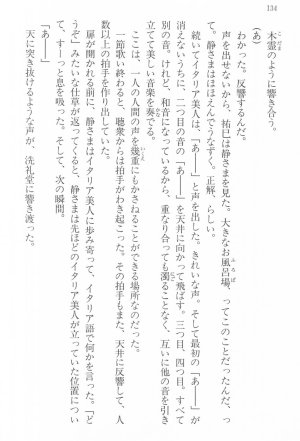 134
木霊のように響き合う。
(あ)
わかった。反響するんだ。
声を出せないから、祐巳は静さまを見た。大きなお風呂場、ってことだったんだ、っ
て。静さまはほほえんでうなずく。正解、らしい。
続いてイタリア美人は、「あ――」と声を出した。きれいな声。そして最初の「あ――」が
消えないうちに、二つ目の音の「あ――」を天井に向かって飛ばす。三つ目、四つ目。すべて
別の音。けれど、和音になっているから、重なり合っても濁ることなく、互いに他の音を引き
立てて美しい音楽を奏でる。
ここは、一人の人間の声を幾重にもかさねることができる場所なのだった。
一節歌い終わると、聴衆からは拍手がわき起こった。その拍手もまた、天井に反響して、人
数以上の拍手を作り出していた。
扉が開かれる前に、静さまはイタリア美人に歩み寄って、イタリア語で何かを言った。「ど
うぞ」みたいな仕草が返ってくると、静さまは先ほどのイタリア美人が立っていた位置につい
て、すーっと息を吸った。そして、次の瞬間。
天に突き抜けるような声が、洗礼堂に響き渡った。